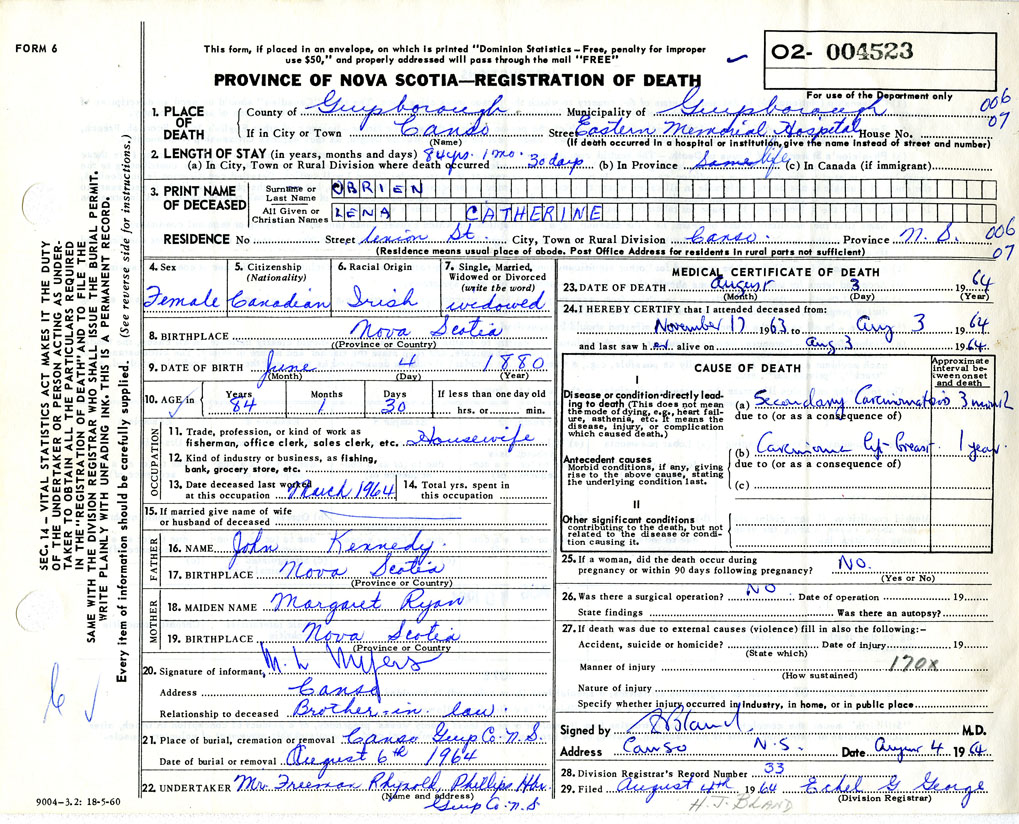 FORM 6
This form, if placed in an envelope, on which is printed "Dominion Statistics – Free, penalty for improper
use $50," and properly addressed will pass through the mail "FREE"
02- 004523
For use of the Department only
PROVINCE OF NOVA SCOTIA—REGISTRATION OF DEATH
1. PLACE OF DEATH
County of Guysborough Municipality of Guysborough
006
07
If in City or Town Canso Street Eastern Memorial Hospital House No.
(Name) (If death occurred in a hospital or institution, give the name instead of street and number)
2. LENGTH OF STAY (in years, months and days) 84 yrs. 1 mo. 30 days
(a) In City, Town or Rural Division where death occurred (b) In Province Same life (c) In Canada (if immigrant)
3. PRINT NAME OF DECEASED
Surname or Last Name OBRIEN
All Given or Christian Names LENA CATHERINE
RESIDENCE No Street Union St. City, Town or Rural Division Canso Province N.S.
006
07
(Residence means usual place of abode. Post Office Address for residents in rural parts not sufficient)
4. Sex
Female
5. Citizenship
(Nationality)
Canadian
6. Racial Origin
Irish
7. Single, Married, Widowed or Divorced
(write the word)
widowed
8. BIRTHPLACE Nova Scotia
(Province or Country)
9. DATE OF BIRTH June 4 1880
(Month) (Day) (Year)
10. AGE in Years 84 Months 1 Days 30 If less than one day old
hrs. or min.
OCCUPATION
11. Trade, profession, or kind of work as
fisherman, office clerk, sales clerk, etc. Housewife
12. Kind of industry or business, as fishing,
bank, grocery store, etc.
13. Date deceased last worked
at this occupation March 1964
14. Total yrs. spent in
this occupation
15. If married give name of wife
or husband of deceased
FATHER
16. NAME John Kennedy.
17. BIRTHPLACE Nova Scotia
(Province or Country)
MOTHER
18. MAIDEN NAME Margaret Ryan
19. BIRTHPLACE Nova Scotia
(Province or Country)
20. Signature of informant, M. L Myers
Address Canso
Relationship to deceased Brother-in-law.
21. Place of burial, cremation or removal Canso Guys Co. N.S.
Date of burial or removal August 6th 1964
22. UNDERTAKER Mr. Freeman Rhynold, Phillips Hbr.
(Name and address)
Guys Co. N.S
9004–3.2: 18-5-60
MEDICAL CERTIFICATE OF DEATH
23. DATE OF DEATH August 3 1964
(Month) (Day) (Year)
24. I HEREBY CERTIFY that I attended deceased from:
November 17 1963 to Aug 3 1964
and last saw her alive on Aug 3 1964
CAUSE OF DEATH
Approximate interval between onset and death
I
Disease or condition directly leading to death (This does not mean the mode of dying, e.g., heart failure, asthenia, etc. It means the disease, injury, or complication which caused death.)
(a) Secondary Carcinomatosis 3 month
due to (or as a consequence of)
Antecedent causes
Morbid conditions, if any, giving rise to the above cause, stating the underlying condition last.
(b) Carcinoma left breast 1 year
due to (or as a consequence of)
(c)
II
Other significant conditions
contributing to the death, but not related to the disease or condition causing it.
25. If a woman, did the death occur during
pregnancy or within 90 days following pregnancy? NO.
(Yes or No)
26. Was there a surgical operation? NO Date of operation 19
State findings Was there an autopsy?
27. If death was due to external causes (violence) fill in also the following:–
Accident, suicide or homicide? Date of injury 19
(State which)
Manner of injury 170X
(How sustained)
Nature of injury
Specify whether injury occurred in industry, in home, or in public place
Signed by HJBland M.D.
Address Canso N.S. Date August 4 1964
28. Division Registrar's Record Number 33
29. Filed August 4th 1964 Ethel G George
H.J. BLAND (Division Registrar)
SEC. 14 – VITAL STATISTICS ACT MAKES IT THE DUTY
OF THE UNDERTAKER OR PERSON ACTING AS UNDER-
TAKER TO OBTAIN ALL THE PARTICULARS REQUIRED
IN THE "REGISTRATION OF DEATH" AND TO FILE THE
SAME WITH THE DIVISION REGISTRAR WHO SHALL ISSUE THE BURIAL PERMIT.
WRITE PLAINLY WITH UNFADING INK. THIS IS A PERMANENT RECORD.
Every item of information should be carefully supplied. (See reverse side for instructions.)